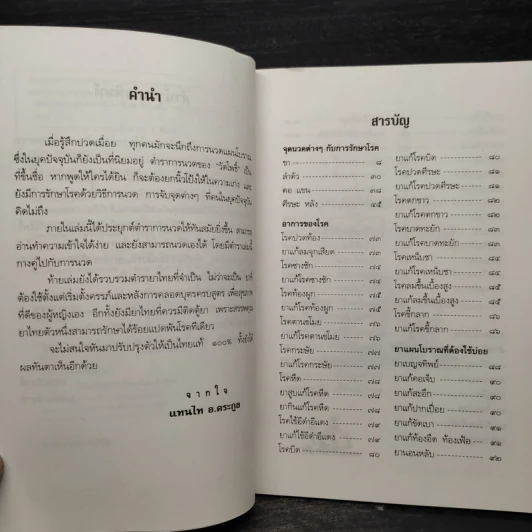 คำนำ
เมื่อรู้สึกปวดเมื่อย ทุกคนมักจะนึกถึงการนวดแผนโบราณ
ซึ่งในยุคปัจจุบันก็ยังเป็นที่นิยมอยู่ ตำราการนวดของ "วัดโพธิ์" เป็น
ที่ขึ้นชื่อ หากพูดให้ใครได้ยิน ก็จะต้องยกนิ้วโป้งให้ในความเก่ง และ
ยังมีการรักษาโรคด้วยวิธีการนวด การจับจุดต่างๆ ที่คนในยุคปัจจุบัน
คิดไม่ถึง
ภายในเล่มนี้ได้ประยุกต์ตำราการนวดให้ทันสมัยยิ่งขึ้น สามารถ
อ่านทำความเข้าใจได้ง่าย และยังสามารถนวดเองได้ โดยมีตำราเล่มนี้
กางคู่ไปกับการนวด
ท้ายเล่มยังได้รวบรวมตำรายาไทยที่จำเป็น ไม่ว่าจะเป็น ยาที่
ต้องใช้ตั้งแต่เริ่มตั้งครรภ์และหลังการคลอดบุตรครบสูตร เพื่อสุขภาพ
ที่ดีของผู้หญิงเอง อีกทั้งยังมียาไทยที่ควรมีติดตู้ยา เพราะสรรพคุณ
ยาไทยตัวหนึ่งสามารถรักษาได้ร้อยแปดพันโรคทีเดียว
จะไม่สนใจหันมาปรับปรุงตัวให้เป็นไทยแท้ ๑๐๐% ทั้งทำให้
ผลทันตาเห็นอีกด้วย
จากใจ
แทนไท อ.ตระกูล
สารบัญ
จุดนวดต่างๆ กับการรักษาโรค
ขา ๘
ลำตัว ๓๐
คอ แขน ๓๘
ศีรษะ หลัง ๔๕
อาการของโรค
โรคปวดท้อง ๗๓
ยาแก้ลมจุกเสียด ๗๓
โรคซางชัก ๗๔
ยาแก้โรคซางชัก ๗๔
โรคท้องผูก ๗๕
ยาแก้โรคท้องผูก ๗๕
โรคตานขโมย ๗๖
ยาแก้โรคตานขโมย ๗๖
โรคกระษัย ๗๗
ยาแก้โรคกระษัย ๗๗
โรคหืด ๗๘
ยาสูบแก้โรคหืด ๗๘
ยากินแก้โรคหืด ๗๘
โรคไข้อีดำอีแดง ๗๙
ยาแก้ไข้อีดำอีแดง ๗๙
โรคบิด ๘๐
ยาแก้โรคบิด ๘๐
โรคปวดศีรษะ
ยาแก้โรคปวดศีรษะ
โรคตกขาว
ยาแก้โรคตกขาว
โรคบาดทะยัก
ยาแก้โรคบาดทะยัก
โรคเหน็บชา
ยาแก้โรคเหน็บชา
โรคลมขึ้นเบื้องสูง
ยาแก้ลมขึ้นเบื้องสูง
โรคขี้กลาก
ยาแก้โรคขี้กลาก
ยาแผนโบราณที่ต้องใช้บ่อย
ยาเบญจทิพย์ ๘๘
ยาแก้คอเจ็บ
ยาแก้สะอึก
ยาแก้ปากเปื่อย
ยาแก้ขัดเบา ๙๑
ยาแก้ท้องอืด ท้องเฟ้อ ๙๑
ยานอนหลับ ๙๒